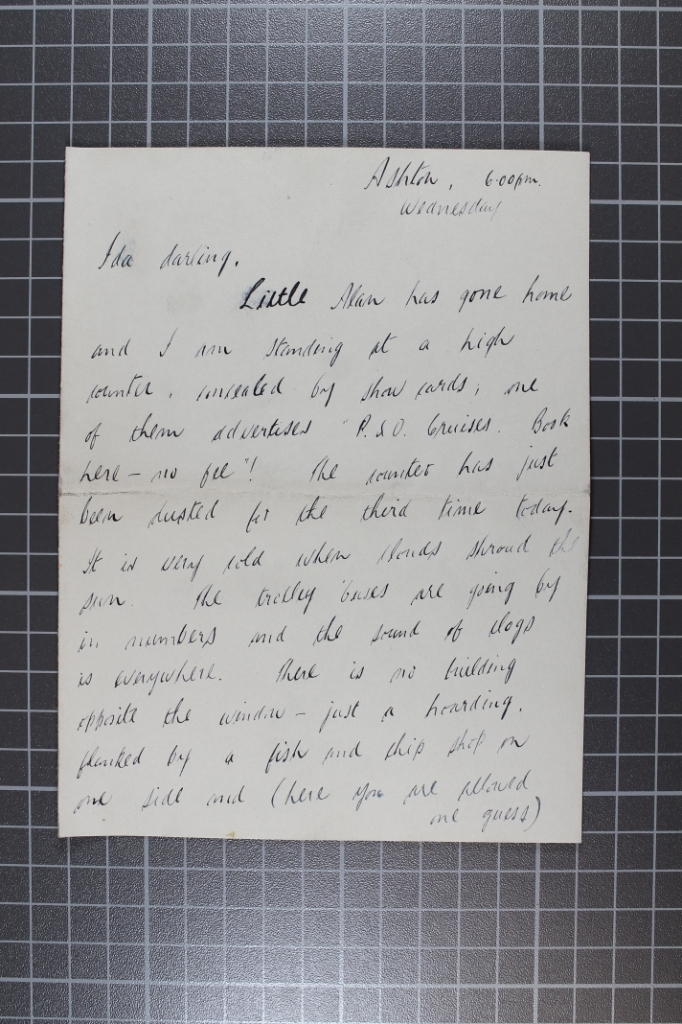 Ashton, 6.00pm.
Wednesday
Ida darling.
Little Alan has gone home
and I am standing at a high
counter, concealed by show cards; one
of them advertises "P. & O. Cruises. Book
here - no fee"! The counter has just
been dusted for the third time today.
It is very cold when clouds shroud the
sun. The trolley 'buses are going by
in numbers and the sound of clogs
is everywhere. There is no building
opposite the window - just a hoarding.
flanked by a fish and chip shop on
one side and (here you are allowed
one guess)